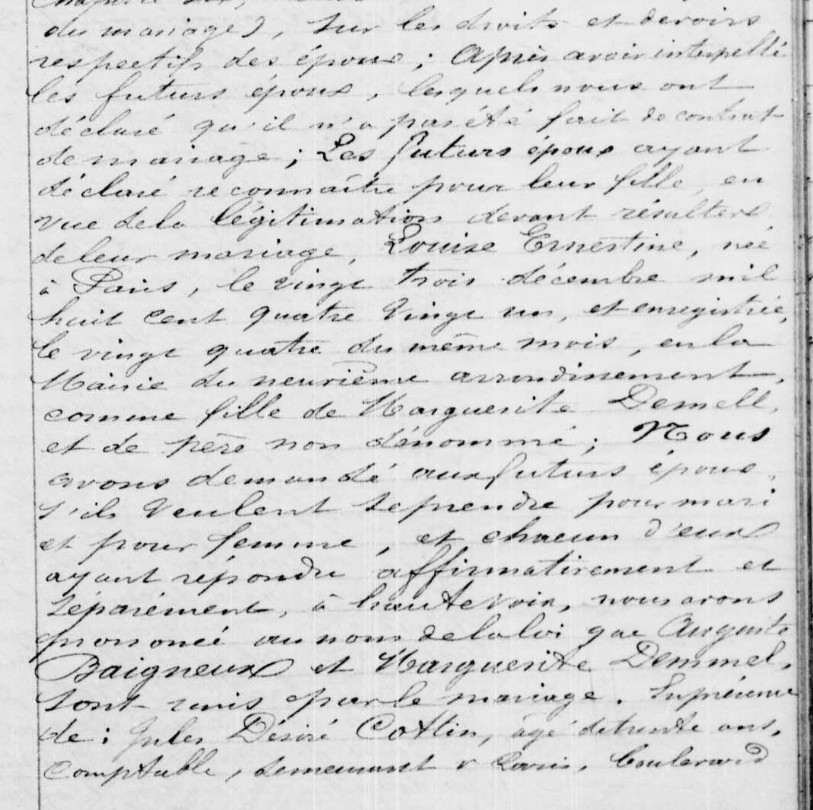 du mariage), sur les droits et devoirs
respectifs des époux ; Après avoir interpellé
les futurs époux, lesquels nous ont
déclaré qu'il n'a pas été fait de contrat
de mariage ; Les futurs époux ayant
déclaré reconnaître pour leur fille, en
vue de la légitimation devant résulter
de leur mariage, Louise Ernestine, née
à Paris, le vingt trois décembre mil
huit cent quatre vingt un, et enregistrée,
le vingt quatre du même mois, en la
Mairie du neuvième arrondissement,
comme fille de Marguerite Demell,
et de père non dénommé ; Nous
avons demandé aux futurs époux,
s'ils veulent se prendre pour mari
et pour femme, et chacun d'eux
ayant répondu affirmativement et
séparément, à haute voix, nous avons
prononcé au nom de la loi que Auguste
Baigneux et Marguerite Demmel,
sont unis par le mariage. En présence
de : Jules Désiré Cottin, âgé de trente ans,
comptable, demeurant à Paris, boulevard